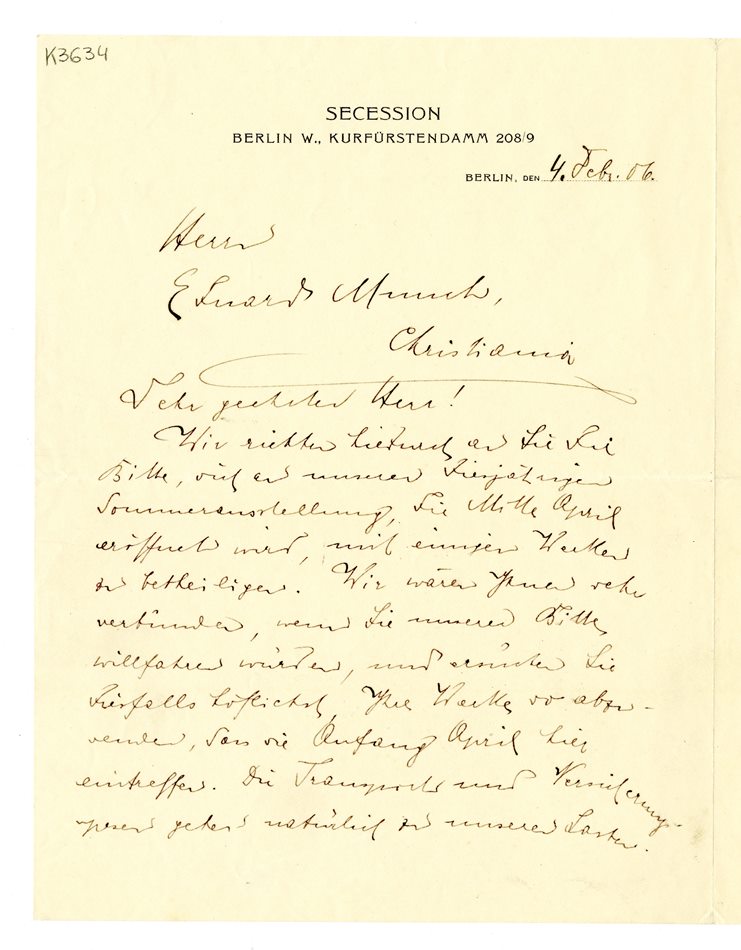 K3634
SECESSION
BERLIN W., KURFÜRSTENDAMM 208/9
BERLIN, DEN 4. Febr. 06.
Herrn
Eduard Munch,
Christiania
Sehr geehrter Herr!
Wir richten hiedurch an Sie die
Bitte, sich an unserer diesjährigen
Sommerausstellung, die Mitte April
eröffnet wird, mit einigen Werken
zu betheiligen. Wir wären Ihnen sehr
verbunden, wenn Sie unserer Bitte
willfahren würden, und ersuchen Sie
diesfalls höflichst, Ihre Werke so abzu-
senden, dass sie Anfang April hier
eintreffen. Die Transport und Versicherungs-
spesen gehen natürlich zu unseren Lasten.